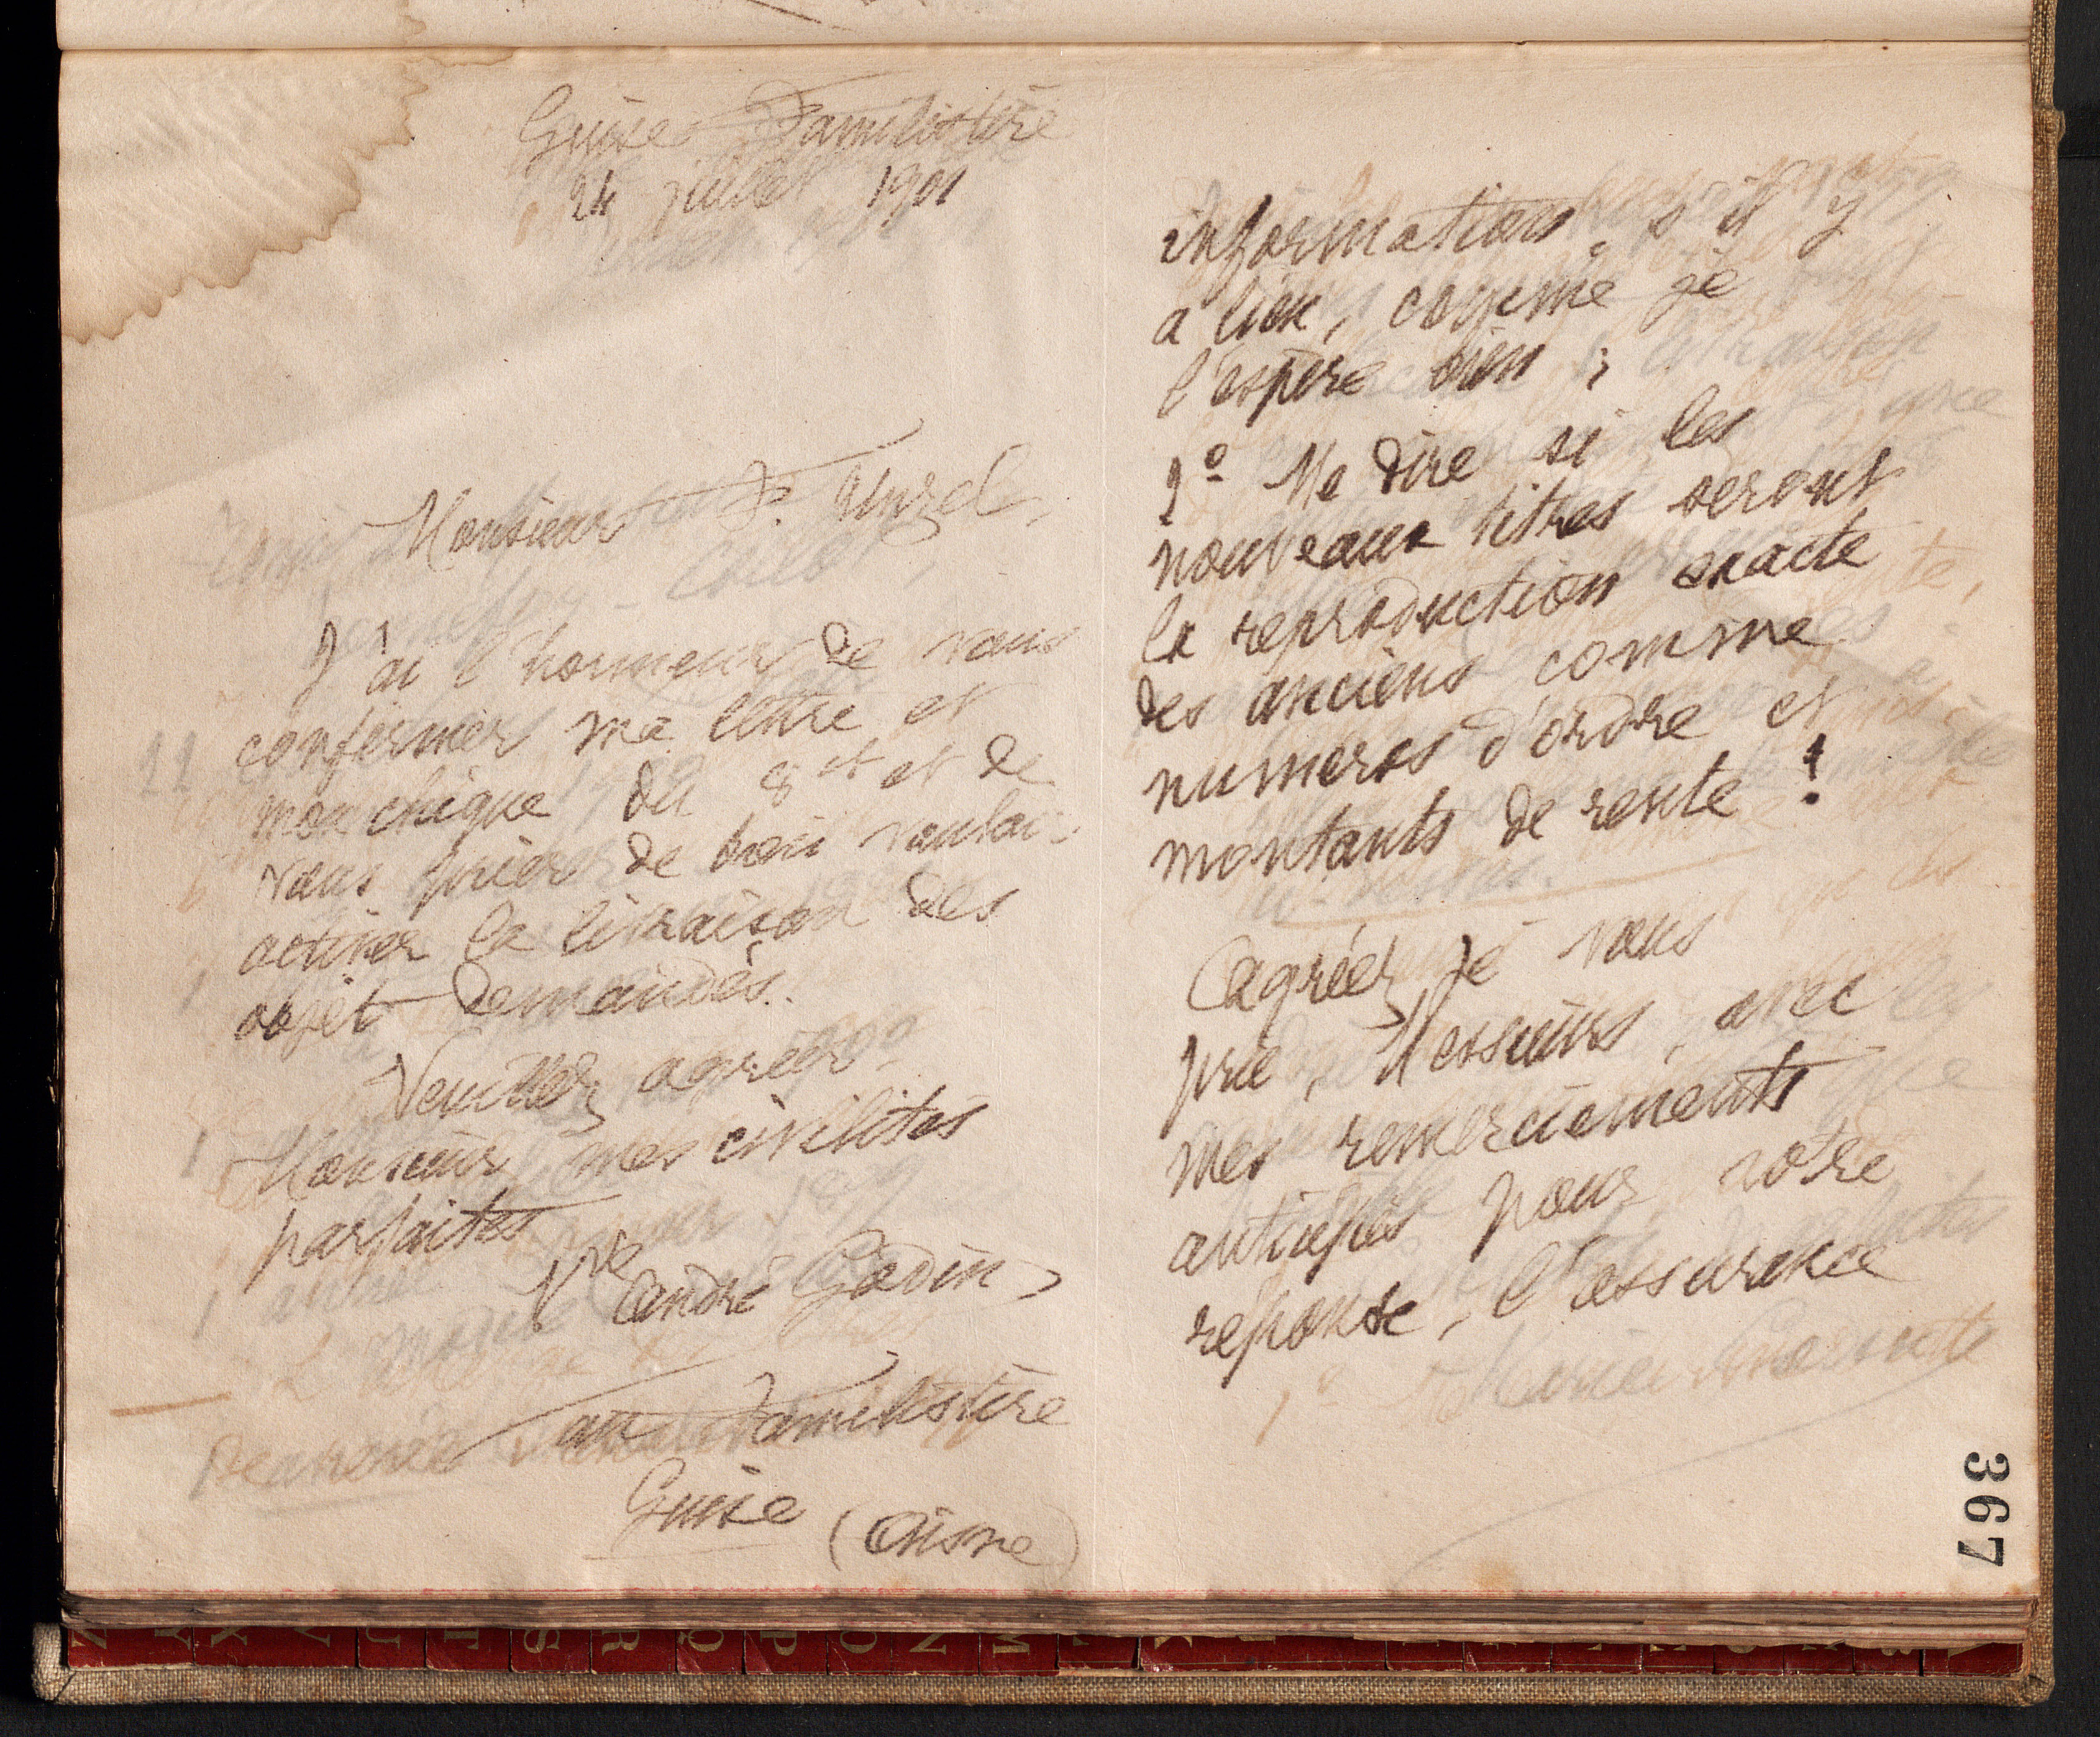 Guise Familistère
24 juillet 1901
Monsieur F.
J'ai l'honneur de vous
confirmer ma lettre et
mon chèque du 8 ct et de
vous prier de bien vouloir
activer la livraison des
objet demandés.
Veuillez agréer
Monsieur mes civilités
parfaites
Vve André Godin
au Familistère
Guise (Aisne)
informations s'il y
a lieu, comme je
l'espère bien ;
2o Me dire si les
nouveaux titres seront
la reproduction exacte
des anciens comme
numeros d'ordre et
montants de rente !
Agréez je vous
prie, Messieurs, avec
mes remerciements
anticipés pour votre
réponse, l'assurance
367